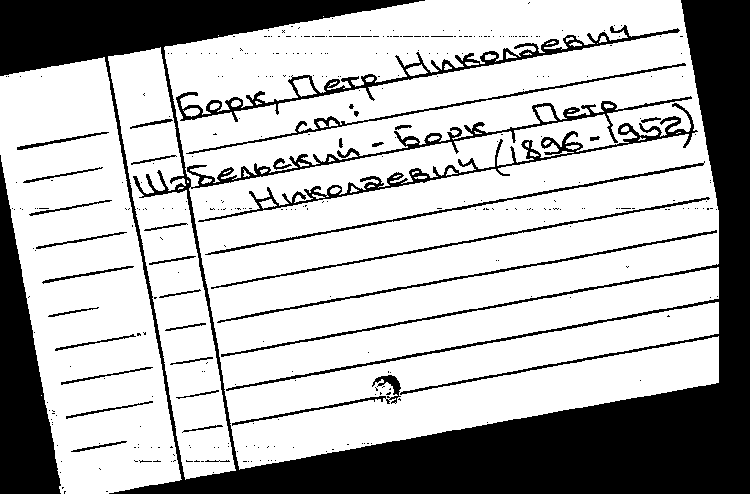 Борк, Петр Николаевич
ст.:
Шабельский - Борк, Петр
Николаевич (1896-1952)